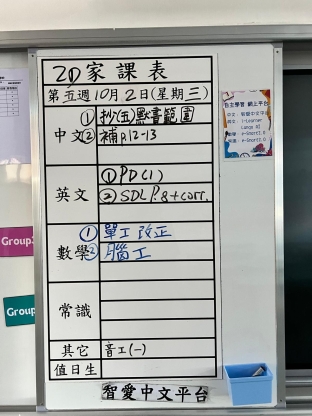 2D家課表
第五週10月2日(星期三)
中文
①抄(五)默書範圍
②補p.12-13
英文
①PD(1)
②SDL P.8+corr.
數學
①單工改正
②腦工
常識
其它
音工(一)
值日生
智愛中文平台
自主學習 網上平台
中文:智愛中文平台
Group
Group